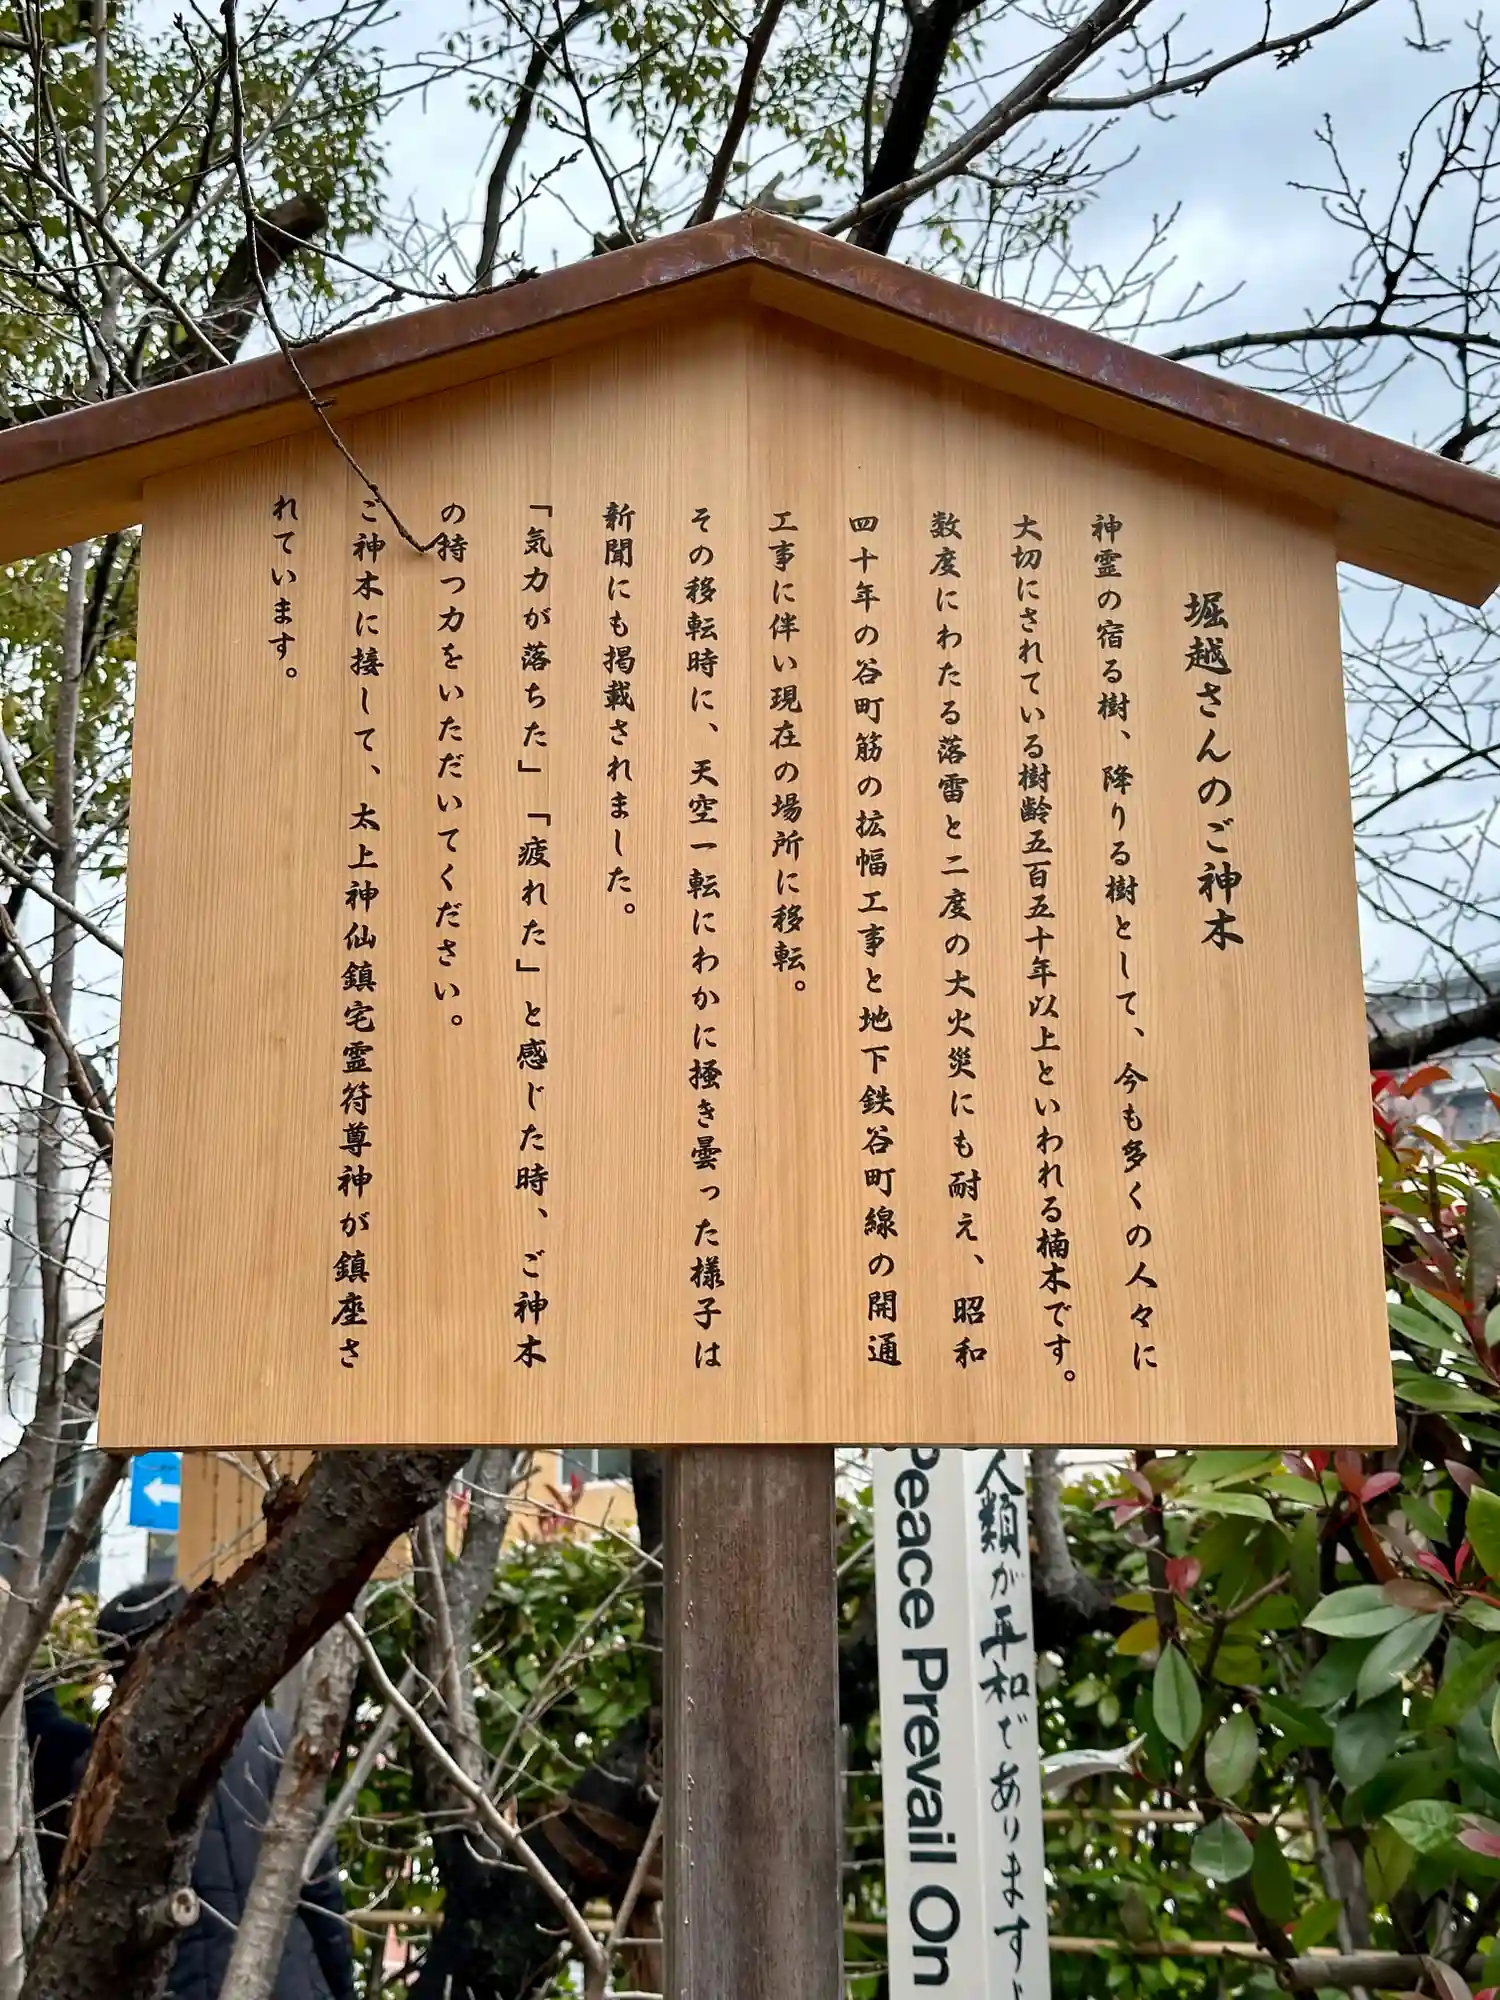 堀越さんのご神木
神霊の宿る樹、降りる樹として、今も多くの人々に
大切にされている樹齢五百五十年以上といわれる楠木です。
数度にわたる落雷と二度の大火災にも耐え、昭和
四十年の谷町筋の拡幅工事と地下鉄谷町線の開通
工事に伴い現在の場所に移転。
その移転時に、天空一転にわかに掻き曇った様子は
新聞にも掲載されました。
「気力が落ちた」「疲れた」と感じた時、ご神木
の持つ力をいただいてください。
ご神木に接して、太上神仙鎮宅霊符尊神が鎮座さ
れています。
人類が平和でありますよ
Peace Prevail On